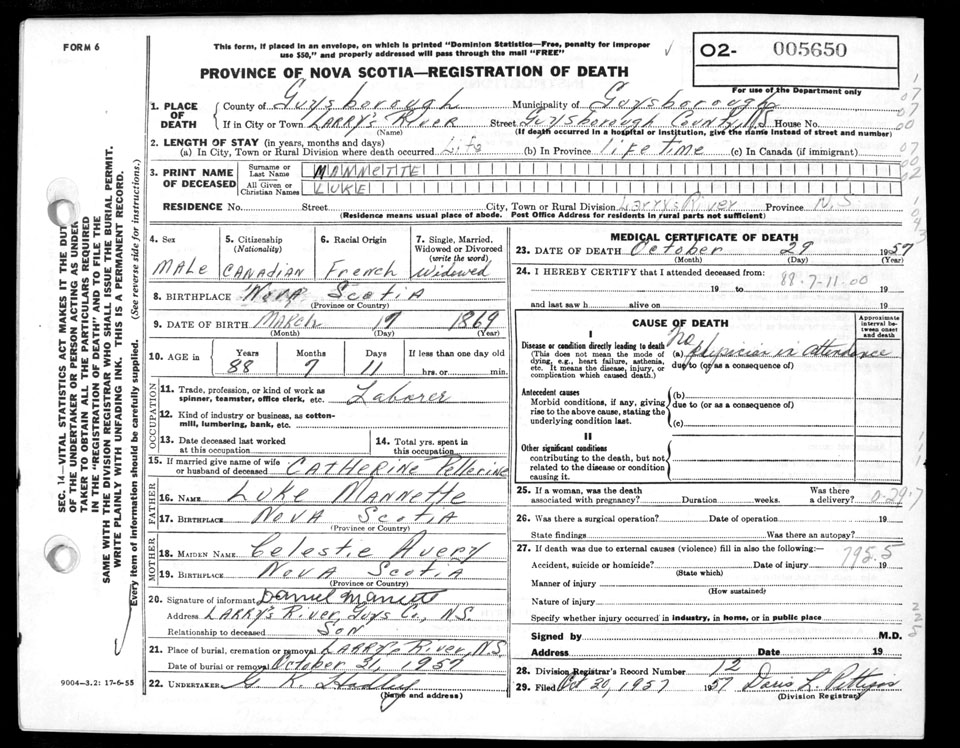 FORM 6
This form, if placed in an envelope, on which is printed "Dominion Statistics—Free, penalty for improper
use $50," and properly addressed will pass through the mail "FREE"
PROVINCE OF NOVA SCOTIA—REGISTRATION OF DEATH
O2- 005650
For use of the Department only
1. PLACE OF DEATH County of Guysborough Municipality of Guysborough
If in City or Town LARRY'S RIVER (Name) Street Guysborough County, N.S House No.
(If death occurred in a hospital or institution, give the name instead of street and number)
2. LENGTH OF STAY (in years, months and days)
(a) In City, Town or Rural Division where death occurred Life (b) In Province life Time (c) In Canada (if immigrant)
3. PRINT NAME OF DECEASED
Surname or Last Name MANNETTE
All Given or Christian Names LUKE
RESIDENCE No. Street City, Town or Rural Division Larry's River Province N.S
(Residence means usual place of abode. Post Office Address for residents in rural parts not sufficient)
4. Sex MALE
5. Citizenship (Nationality) CANADIAN
6. Racial Origin French
7. Single, Married, Widowed or Divorced (write the word) Widowed
8. BIRTHPLACE Nova Scotia
(Province or Country)
9. DATE OF BIRTH March 17 1869
(Month) (Day) (Year)
10. AGE in Years 88 Months 7 Days 11 If less than one day old hrs. or min.
OCCUPATION
11. Trade, profession, or kind of work as spinner, teamster, office clerk, etc. Laborer
12. Kind of industry or business, as cotten-mill, lumbering, bank, etc.
13. Date deceased last worked at this occupation
14. Total yrs. spent in this occupation
15. If married give name of wife or husband of deceased CATHERINE Pellerine
FATHER
16. NAME LUKE MANNETTE
17. BIRTHPLACE NOVA SCOTIA
(Province or Country)
MOTHER
18. MAIDEN NAME Celestie Avery
19. BIRTHPLACE NOVA SCOTIA
(Province or Country)
20. Signature of informant Daniel Manett
Address LARRY'S River, Guys Co., N.S.
Relationship to deceased SON
21. Place of burial, cremation or removal LARRY'S River, N.S.
Date of burial or removal October 31, 1957
22. UNDERTAKER G. K.
(Name and address)
MEDICAL CERTIFICATE OF DEATH
23. DATE OF DEATH October 29 1957
(Month) (Day) (Year)
24. I HEREBY CERTIFY that I attended deceased from:
19 to 88-7-11-00 19
and last saw h alive on 19
CAUSE OF DEATH
Approximate interval between onset and death
I
Disease or condition directly leading to death (a) No physician in attendance
(This does not mean the mode of dying, e.g., heart failure, asthenia, etc. It means the disease, injury, or complication which caused death.)
due to (or as a consequence of)
Antecedent causes
Morbid conditions, if any, giving rise to the above cause, stating the underlying condition last.
(b)
due to (or as a consequence of)
(c)
II
Other significant conditions
contributing to the death, but not related to the disease or condition causing it.
25. If a woman, was the death associated with pregnancy? Duration weeks. Was there a delivery?
26. Was there a surgical operation? Date of operation 19
State findings Was there an autopsy?
27. If death was due to external causes (violence) fill in also the following:—
795.5
Accident, suicide or homicide? Date of injury 19
(State which)
Manner of injury
(How sustained)
Nature of injury
Specify whether injury occurred in industry, in home, or in public place
Signed by M.D.
Address Date 19
28. Division Registrar's Record Number 12
29. Filed Oct 30, 1957 1957 Doris L
(Division Registrar)
SEC. 14—VITAL STATISTICS ACT MAKES IT THE DUT
OF THE UNDERTAKER OR PERSON ACTING AS UNDER
TAKER TO OBTAIN ALL THE PARTICULARS REQUIRED
IN THE "REGISTRATION OF DEATH" AND TO FILE THE
SAME WITH THE DIVISION REGISTRAR WHO SHALL ISSUE THE BURIAL PERMIT.
WRITE PLAINLY WITH UNFADING INK. THIS IS A PERMANENT RECORD.
Every item of information should be carefully supplied. (See reverse side for instructions.)
9004—3.2: 17-6-55